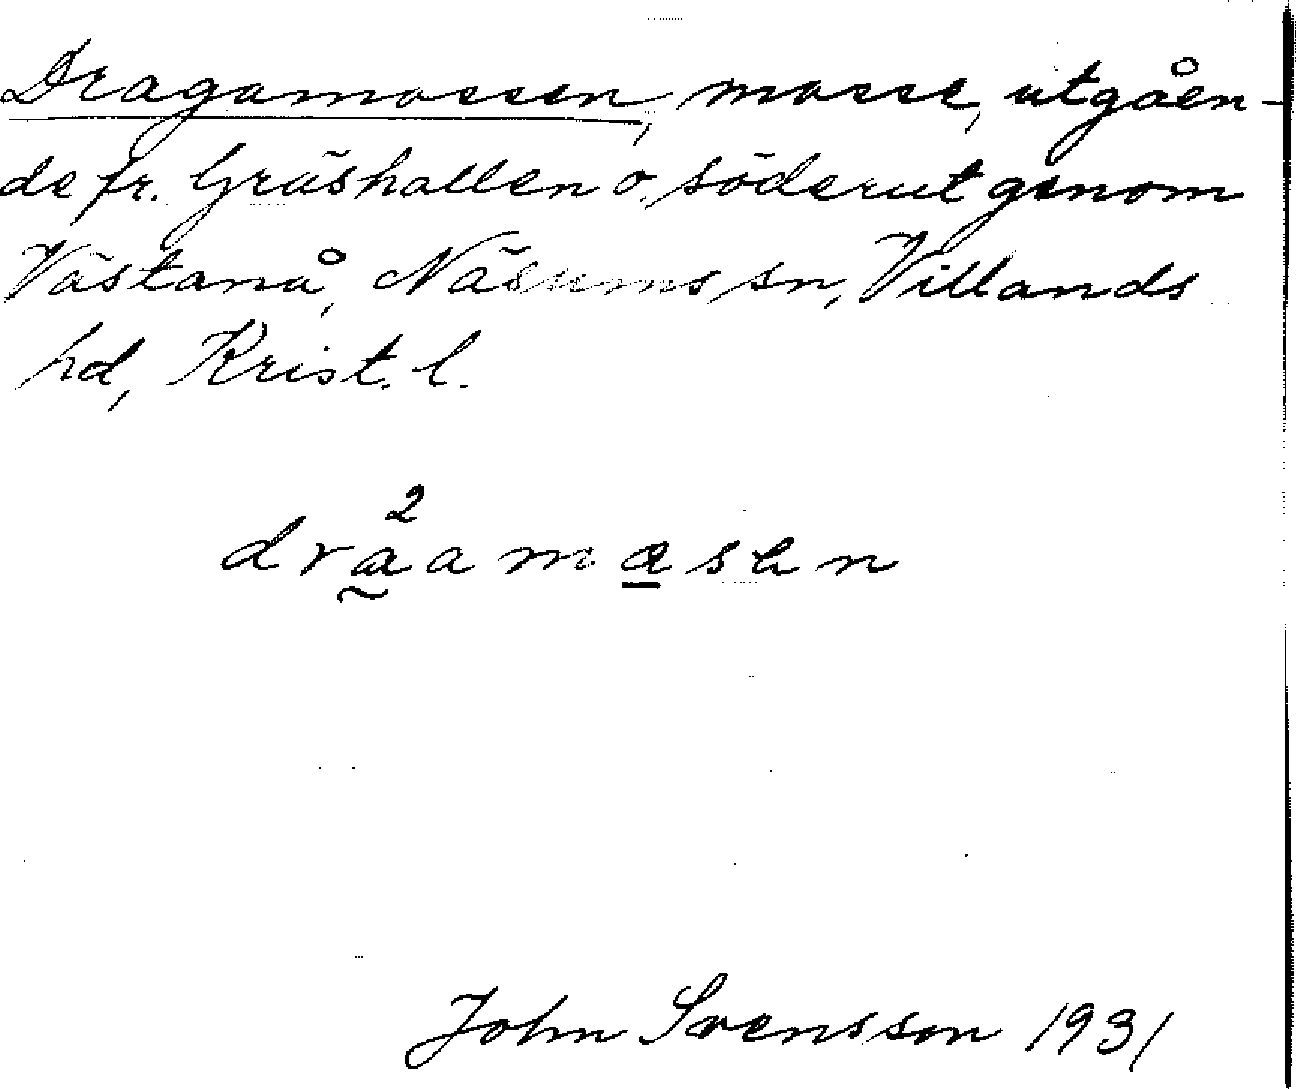 Dragamossen, mosse, utgåen-
de fr. Gräshallen o. söderut genom
Västanå, Näsums sn, Villands
hd, Krist. l.
dra²amasen
John Svensson 1931